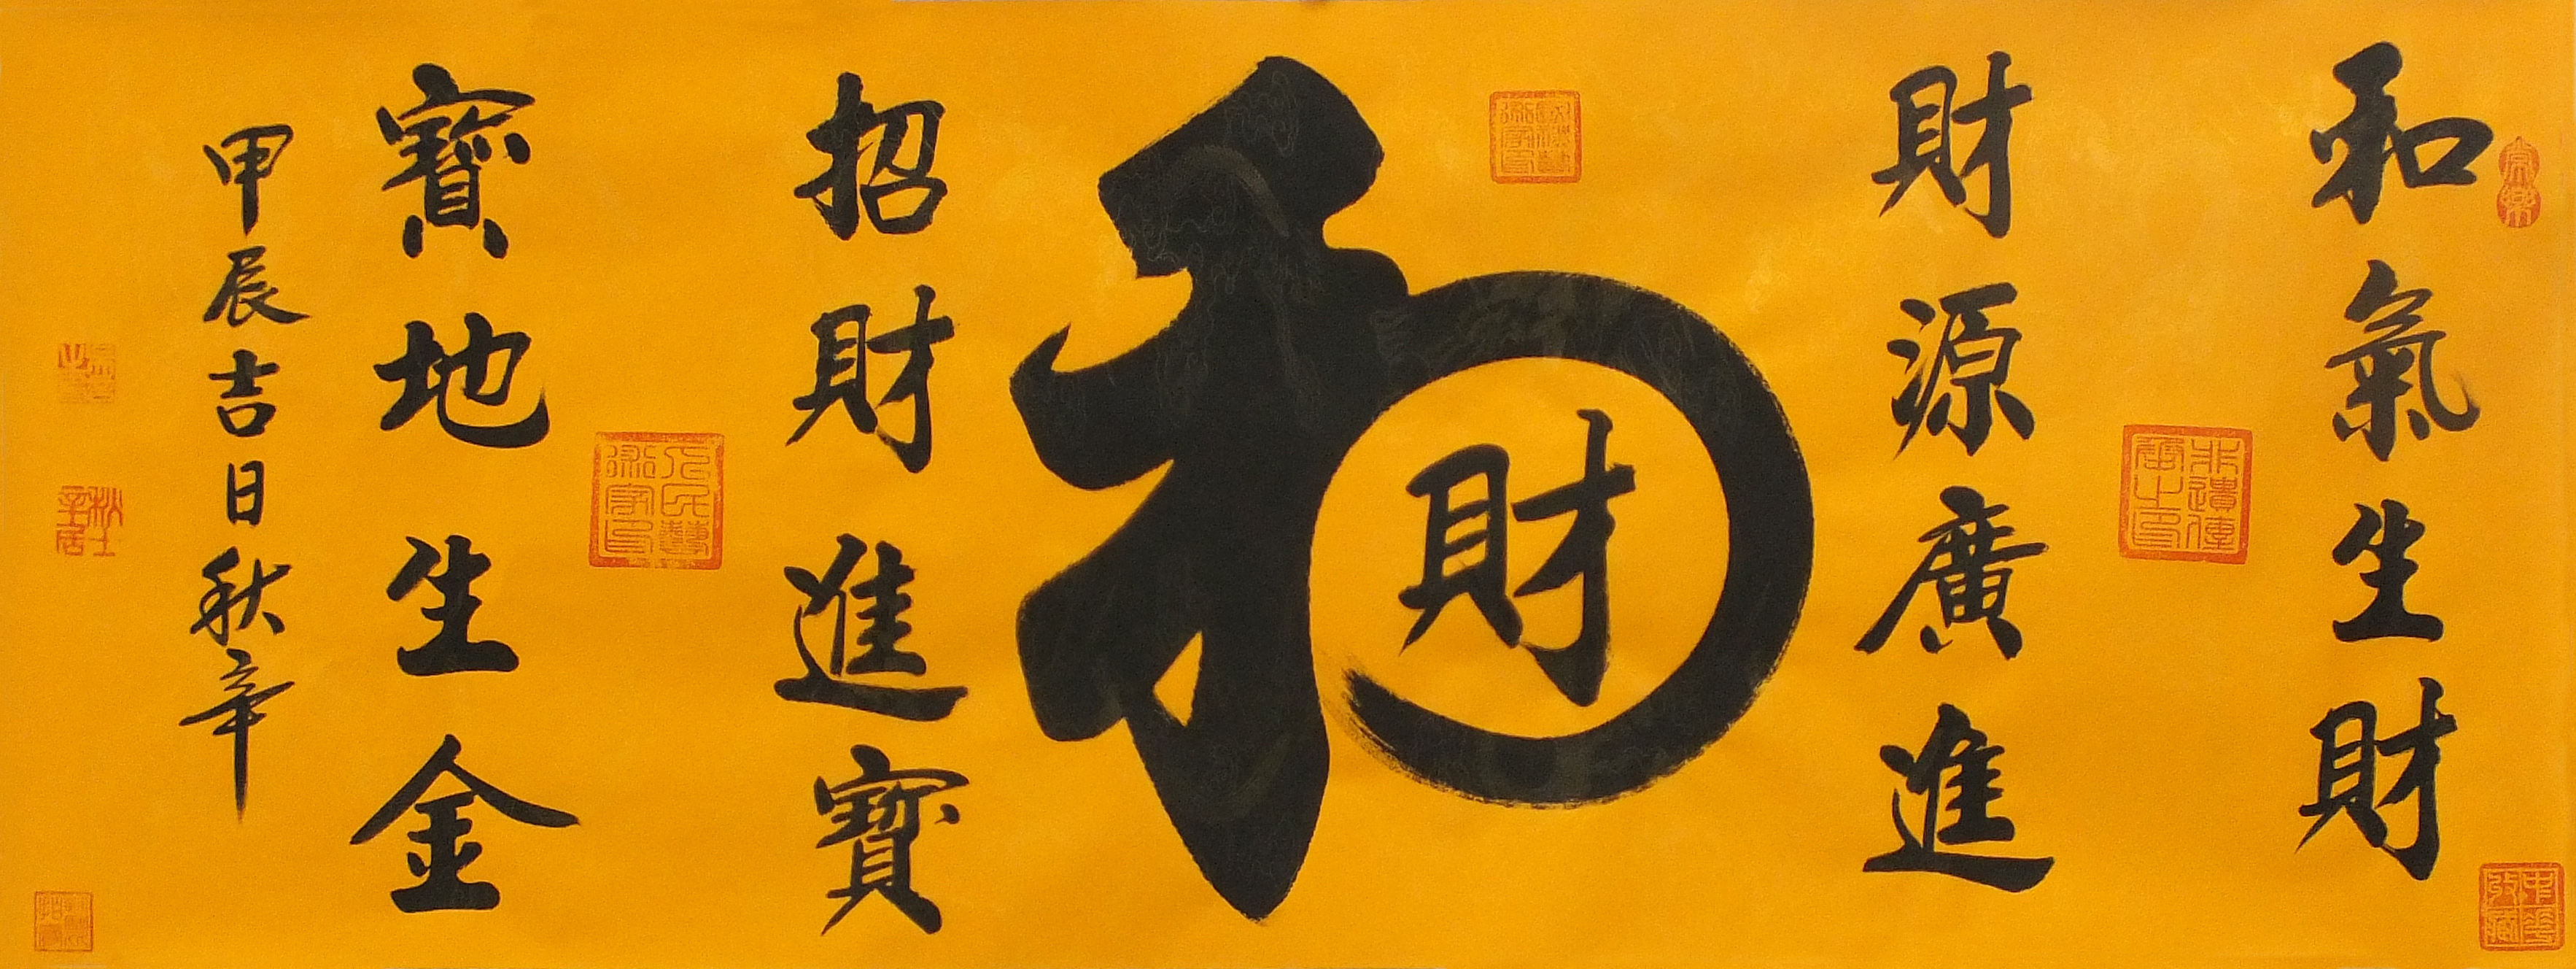 和氣生財
財源廣進
和
財
招財進寶
寶地生金
甲辰吉日秋辛